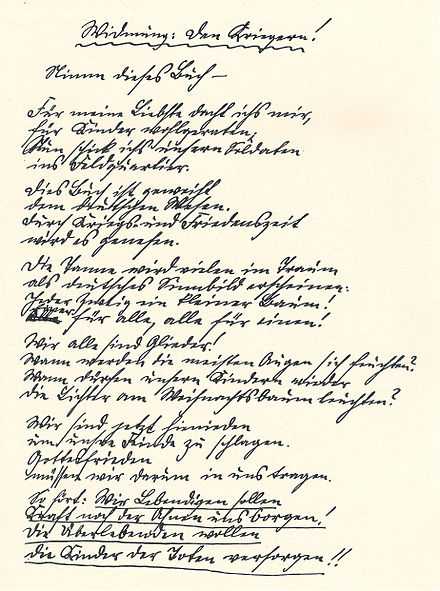 Widmung: Den Kriegern!
Nimm dieses Buch –
Für meine Liebste dacht ichs mir,
für Kinder wohlgeraten;
Nun schick ichs unsern Soldaten
ins Feldquartier.
Dies Buch ist geweiht
dem deutschen Wesen.
Durch Kriegs- und Friedenszeit
wird es genesen.
Die Tanne wird vielen im Traum
als deutsches Sinnbild erscheinen:
Jeder Zweig ein kleiner Baum!
Einer für alle, alle für einen!
Wir alle sind Glieder!
Wann werden die meisten Augen sich feuchten?
Wann dürfen unsern Kindern wieder
die Lichter am Weihnachtsbaum leuchten?
Wir sind jetzt hienieden
um unsre Feinde zu schlagen.
Gottesfrieden
müssen wir darum in uns tragen.
So hört: Wir Lebendigen sollen
Kraft noch der Ahnen uns borgen!
Die Überlebenden wollen
die Kinder der Toten versorgen!!